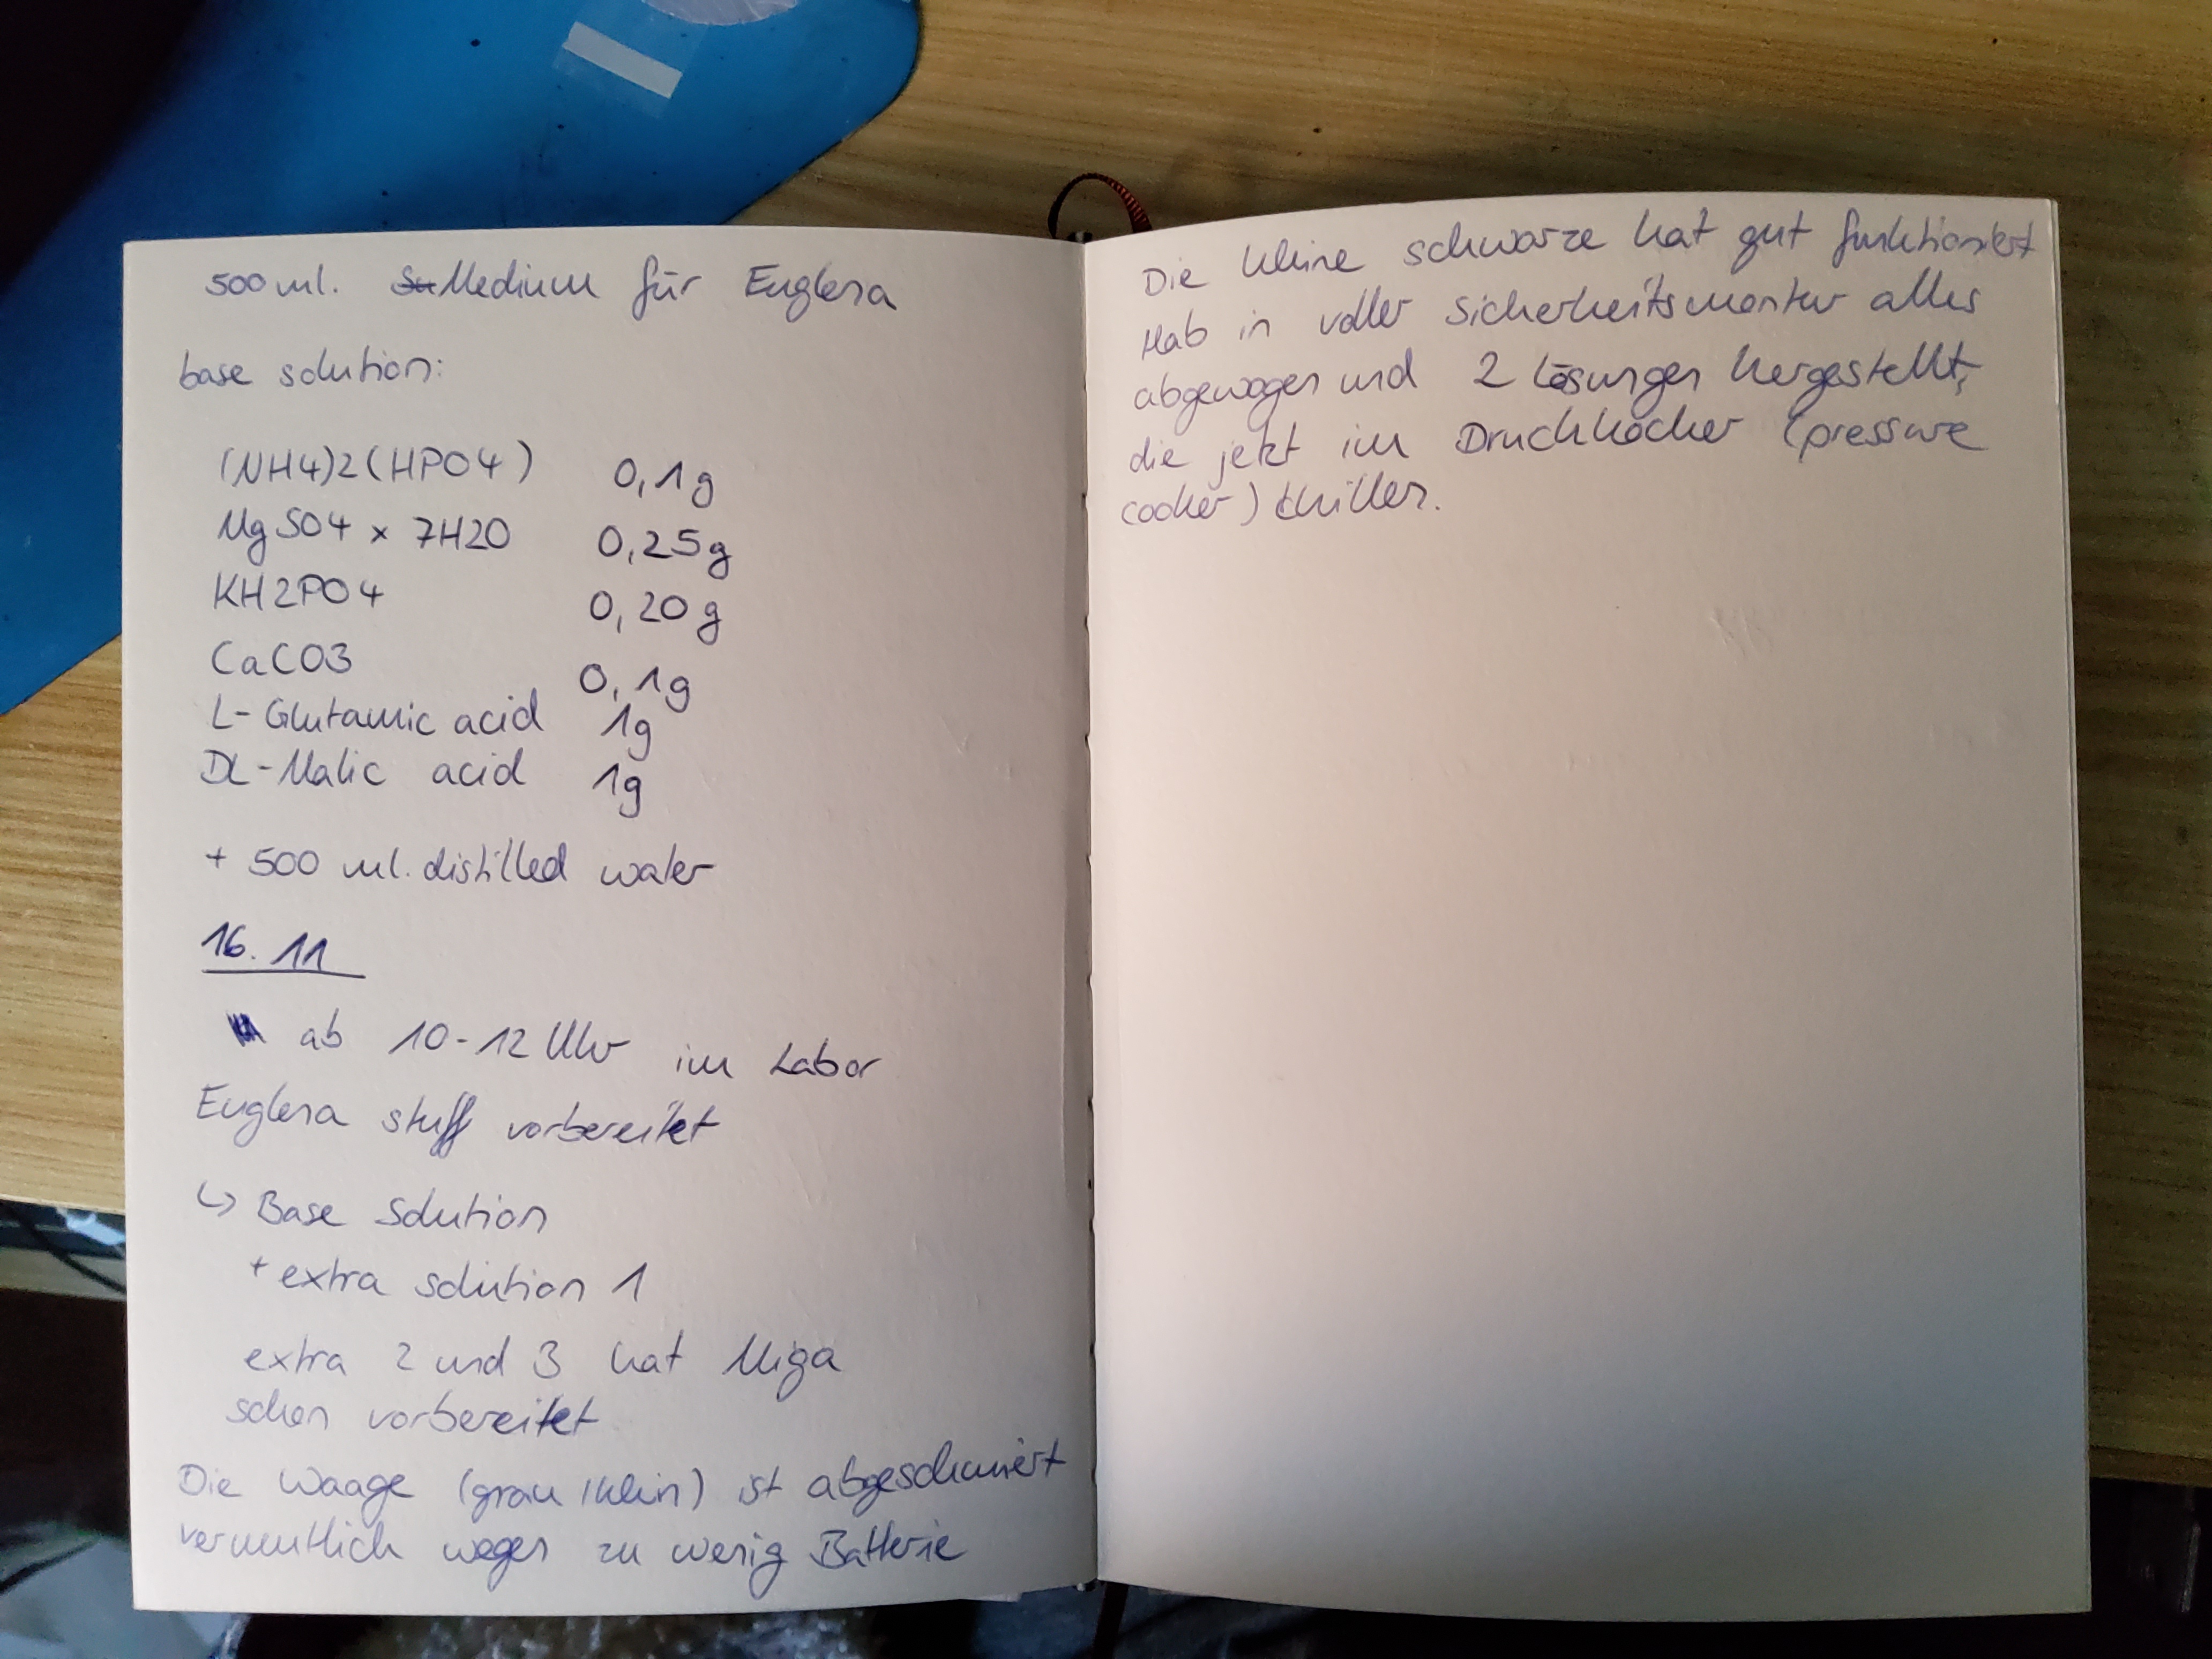 500 ml. Medium für Euglena
base solution:
(NH4)2(HPO4) 0,1g
MgSO4 x 7H2O 0,25g
KH2PO4 0,20g
CaCO3 0,1g
L-Glutamic acid 1g
DL-Malic acid 1g
+ 500 ml. distilled water
16.11
ab 10-12 Uhr im Labor
Euglena stuff vorbereitet
↳ Base solution
+ extra solution 1
extra 2 und 3 hat Miga
schon vorbereitet
Die Waage (grau/klein) ist abgeschmiert
vermutlich wegen zu wenig Batterie
Die kleine schwarze hat gut funktioniert
Hab in voller Sicherheitsmontur alles
abgewogen und 2 Lösungen hergestellt,
die jetzt im Druckkocher (pressure
cooker) chillen.